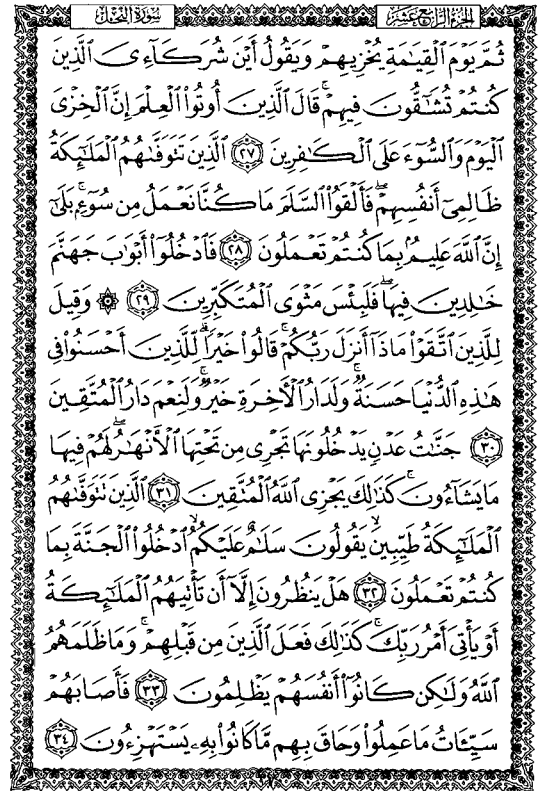 سُورَةُ النَّحْلِ الجُزْءُ الرَّابِعَ عَشَرَ
ثُمَّ يَوْمَ ٱلْقِيَٰمَةِ يُخْزِيهِمْ وَيَقُولُ أَيْنَ شُرَكَآءِىَ ٱلَّذِينَ
كُنتُمْ تُشَٰٓقُّونَ فِيهِمْ ۚ قَالَ ٱلَّذِينَ أُوتُوا۟ ٱلْعِلْمَ إِنَّ ٱلْخِزْىَ
ٱلْيَوْمَ وَٱلسُّوٓءَ عَلَى ٱلْكَٰفِرِينَ ٢٧ ٱلَّذِينَ تَتَوَفَّىٰهُمُ ٱلْمَلَٰٓئِكَةُ
ظَالِمِىٓ أَنفُسِهِمْ ۖ فَأَلْقَوُا۟ ٱلسَّلَمَ مَا كُنَّا نَعْمَلُ مِن سُوٓءٍۭ ۚ بَلَىٰٓ
إِنَّ ٱللَّهَ عَلِيمٌۢ بِمَا كُنتُمْ تَعْمَلُونَ ٢٨ فَٱدْخُلُوٓا۟ أَبْوَٰبَ جَهَنَّمَ
خَٰلِدِينَ فِيهَا ۖ فَلَبِئْسَ مَثْوَى ٱلْمُتَكَبِّرِينَ ٢٩ ۞ وَقِيلَ
لِلَّذِينَ ٱتَّقَوْا۟ مَاذَآ أَنزَلَ رَبُّكُمْ ۚ قَالُوا۟ خَيْرًا ۗ لِّلَّذِينَ أَحْسَنُوا۟ فِى
هَٰذِهِ ٱلدُّنْيَا حَسَنَةٌ ۚ وَلَدَارُ ٱلْءَاخِرَةِ خَيْرٌ ۚ وَلَنِعْمَ دَارُ ٱلْمُتَّقِينَ
٣٠ جَنَّٰتُ عَدْنٍ يَدْخُلُونَهَا تَجْرِى مِن تَحْتِهَا ٱلْأَنْهَٰرُ ۖ لَهُمْ فِيهَا
مَا يَشَآءُونَ ۚ كَذَٰلِكَ يَجْزِى ٱللَّهُ ٱلْمُتَّقِينَ ٣١ ٱلَّذِينَ تَتَوَفَّىٰهُمُ
ٱلْمَلَٰٓئِكَةُ طَيِّبِينَ ۙ يَقُولُونَ سَلَٰمٌ عَلَيْكُمُ ٱدْخُلُوا۟ ٱلْجَنَّةَ بِمَا
كُنتُمْ تَعْمَلُونَ ٣٢ هَلْ يَنظُرُونَ إِلَّآ أَن تَأْتِيَهُمُ ٱلْمَلَٰٓئِكَةُ
أَوْ يَأْتِىَ أَمْرُ رَبِّكَ ۚ كَذَٰلِكَ فَعَلَ ٱلَّذِينَ مِن قَبْلِهِمْ ۚ وَمَا ظَلَمَهُمُ
ٱللَّهُ وَلَٰكِن كَانُوٓا۟ أَنفُسَهُمْ يَظْلِمُونَ ٣٣ فَأَصَابَهُمْ
سَيِّـَٔاتُ مَا عَمِلُوا۟ وَحَاقَ بِهِم مَّا كَانُوا۟ بِهِۦ يَسْتَهْزِءُونَ ٣٤